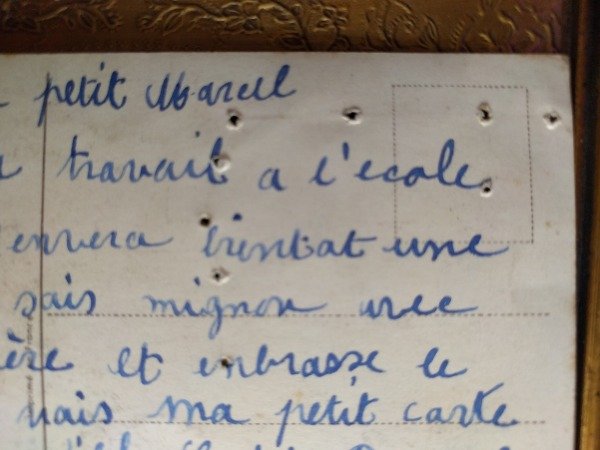 petit Marcel
travail a l'ecole
envera bientat une
sais mignon avec
ère et enbrasse le
vais ma petit carte